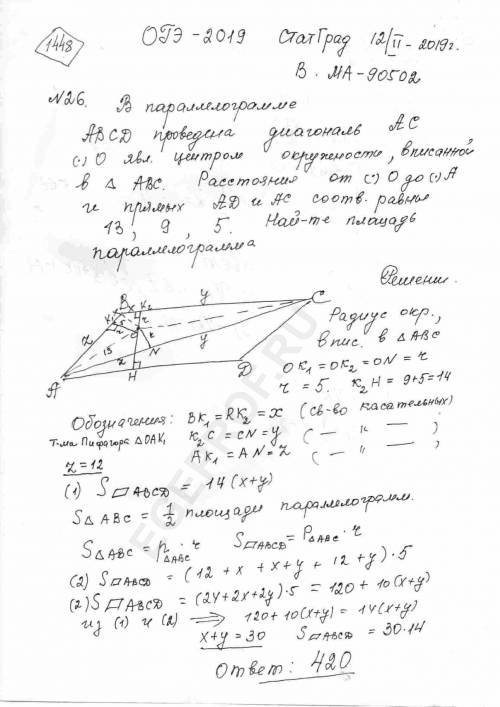 1448
ОГЭ-2019 СтатГрад 12/II-2019г.
В. МА-90502
№26. В параллелограмме
ABCD проведена диагональ AC
(·) O явл. центром окружности, вписанной
в △ ABC. Расстояния от (·) O до (·) A
и прямых AD и AC соотв. равны
13, 9, 5. Най-те площадь
параллелограмма
Решение.
B x K₂ y C
K₁ x r
z 5 O r y
13 N
z
A H D
Радиус окр.,
впис. в △ABC
OK₁=OK₂=ON=r
r=5. K₂H=9+5=14
Обозначения: BK₁=RK₂=x (св-во касательных)
Т-ма Пифагора △OAK₁ K₂C=CN=y (— " — )
z=12 AK₁=AN=z (— " — )
(1) S▱ABCD = 14(x+y)
S△ABC = 1/2 площади параллелограмм.
S△ABC = p△ABC · r S▱ABCD = P△ABC · r
(2) S▱ABCD = (12+x+x+y+12+y)·5
(2) S▱ABCD = (24+2x+2y)·5 = 120+10(x+y)
из (1) и (2) ⟹ 120+10(x+y)=14(x+y)
x+y=30 S▱ABCD = 30·14
Ответ: 420
EGEPROF.RU